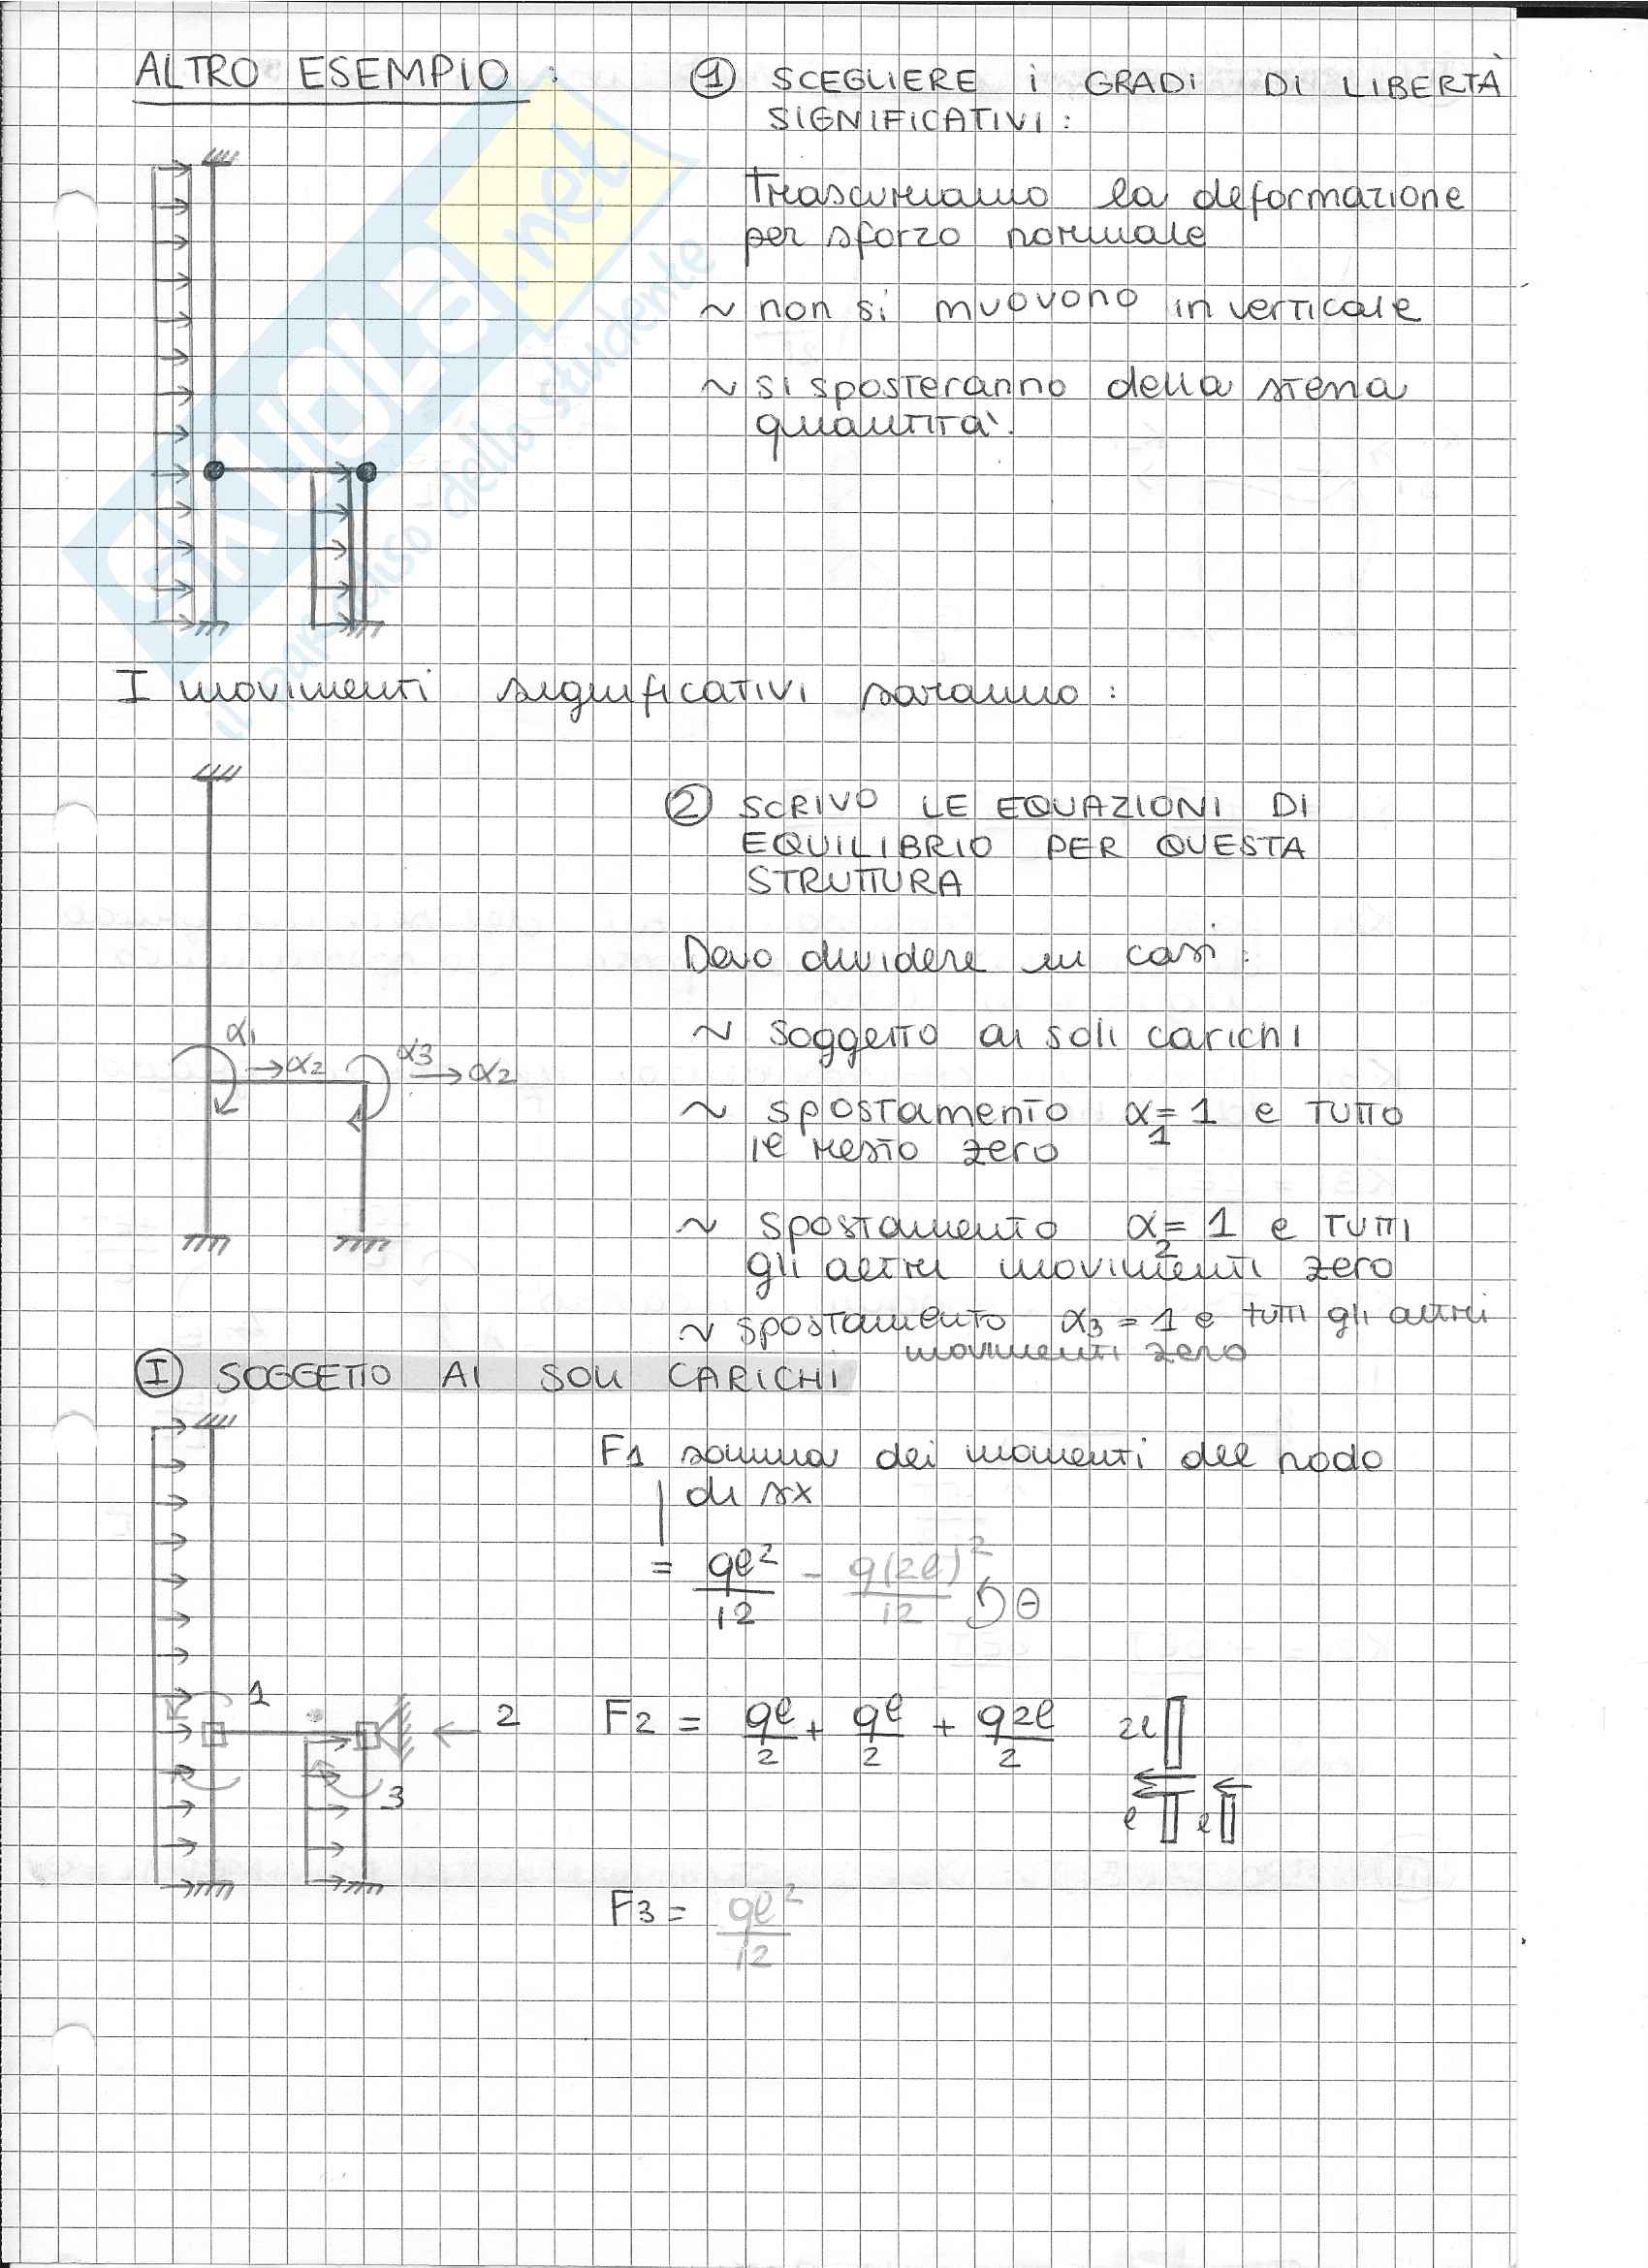 ALTRO ESEMPIO :
① SCEGLIERE i GRADI DI LIBERTÀ
SIGNIFICATIVI :
Trascuriamo la deformazione
per sforzo normale
~ non si muovono in verticale
~ si sposteranno della stessa
quantità.
SKUOLA.net
il paradiso dello studente
I movimenti significativi saranno :
② SCRIVO LE EQUAZIONI DI
EQUILIBRIO PER QUESTA
STRUTTURA
Devo dividere in casi :
~ soggetto ai soli carichi
α1
→α2
α3
→α2
~ spostamento α1 = 1 e tutto
il resto zero
~ spostamento α2 = 1 e tutti
gli altri movimenti zero
~ spostamento α3 = 1 e tutti gli altri
movimenti zero
Ⓘ SOGGETTO AI SOLI CARICHI
F1 somma dei momenti del nodo
di sx
= ql²/12 - q(2l)²/12 ⊖
1
2
3
F2 = ql/2 + ql/2 + q2l/2
2l
l
l
F3 = ql²/12